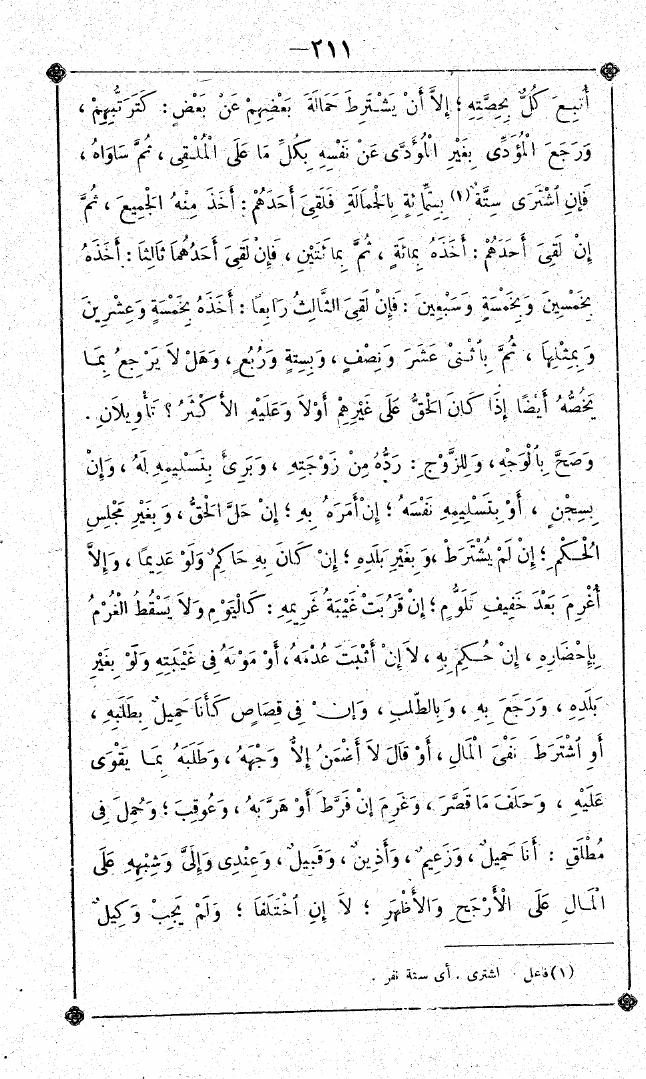 — ٢١١ —
أُتْبِعَ كُلٌّ بِحِصَّتِهِ ؛ إِلاَّ أَنْ يَشْتَرِطَ حَمَالَةَ بَعْضِهِمْ عَنْ بَعْضٍ : كَتَرَتُّبِهِمْ ،
وَرَجَعَ الْمُؤَدِّى بِغَيْرِ الْمُؤَدَّى عَنْ نَفْسِهِ بِكُلِّ مَا عَلَى الْمُلْقِى ، ثُمَّ سَاوَاهُ ،
فَإِنِ ٱشْتَرَى سِتَّةٌ (١) بِسِتِّمِائَةٍ بِالْحَمَالَةِ فَلَقِىَ أَحَدَهُمْ : أَخَذَ مِنْهُ الْجَمِيعَ ، ثُمَّ
إِنْ لَقِىَ أَحَدَهُمْ : أَخَذَهُ بِمَائَةٍ ، ثُمَّ بِمَائَتَيْنِ ، فَإِنْ لَقِىَ أَحَدُهُمَا ثَالِثًا : أَخَذَهُ
بِخَمْسِينَ وَبِخَمْسَةٍ وَسَبْعِينَ : فَإِنْ لَقِىَ الثَّالِثُ رَابِعًا : أَخَذَهُ بِخَمْسَةٍ وَعِشْرِينَ
وَبِمِثْلِهَا ، ثُمَّ بِٱثْنَىْ عَشَرَ وَنِصْفٍ ، وَبِسِتَّةٍ وَرُبُعٍ ، وَهَلْ لاَ يَرْجِعُ بِمَا
يَخُصُّهُ أَيْضًا إِذَا كَانَ الْحَقُّ عَلَى غَيْرِهِمْ أَوْلاَ وَعَلَيْهِ الأَكْثَرُ ؟ تَأْوِيلاَنِ .
وَصَحَّ بِٱلْوَجْهِ ، وَلِلزَّوْجِ : رَدُّهُ مِنْ زَوْجَتِهِ ، وَبَرِئَ بِتَسْلِيمِهِ لَهُ ، وَإِنْ
بِسِجْنٍ ، أَوْ بِتَسْلِيمِهِ نَفْسَهُ ؛ إِنْ أَمَرَهُ بِهِ ؛ إِنْ حَلَّ الْحَقُّ ، وَبِغَيْرِ مَجْلِسِ
الْحُكْمِ ؛ إِنْ لَمْ يُشْتَرَطْ ، وَبِغَيْرِ بَلَدِهِ ؛ إِنْ كَانَ بِهِ حَاكِمٌ وَلَوْ عَدِيمًا ، وَإِلاَّ
أُغْرِمَ بَعْدَ خَفِيفِ تَلَوُّمٍ ؛ إِنْ قَرُبَتْ غَيْبَةُ غَرِيمِهِ : كَالْيَوْمِ وَلاَ يَسْقُطُ الْغُرْمُ
بِإِحْضَارِهِ ، إِنْ حُكِمَ بِهِ ، لاَ إِنْ أَثْبَتَ عُدْمَهُ ، أَوْ مَوْتَهُ فِى غَيْبَتِهِ وَلَوْ بِغَيْرِ
بَلَدِهِ ، وَرَجَعَ بِهِ ، وَبِالطَّلَبِ ، وَإِنْ فِى قِصَاصٍ كَأَنَا حَمِيلٌ بِطَلَبِهِ ،
أَوِ ٱشْتَرَطَ نَفْىَ الْمَالِ ، أَوْ قَالَ لاَ أَضْمَنُ إِلاَّ وَجْهَهُ ، وَطَلَبَهُ بِمَا يَقْوَى
عَلَيْهِ ، وَحَلَفَ مَا قَصَّرَ ، وَغَرِمَ إِنْ فَرَّطَ أَوْ هَرَّبَهُ ، وَعُوقِبَ ؛ وَحُمِلَ فِى
مُطْلَقِ : أَنَا حَمِيلٌ ، وَزَعِيمٌ ، وَأَذِينٌ ، وَقَبِيلٌ ، وَعِنْدِى وَإِلَىَّ وَشِبْهِهِ عَلَى
الْمَالِ عَلَى الْأَرْجَحِ وَالْأَظْهَرِ ؛ لاَ إِنِ ٱخْتَلَفَا ؛ وَلَمْ يَجِبْ وَكِيلٌ
(١) فاعل اشترى . أى ستة نفر .